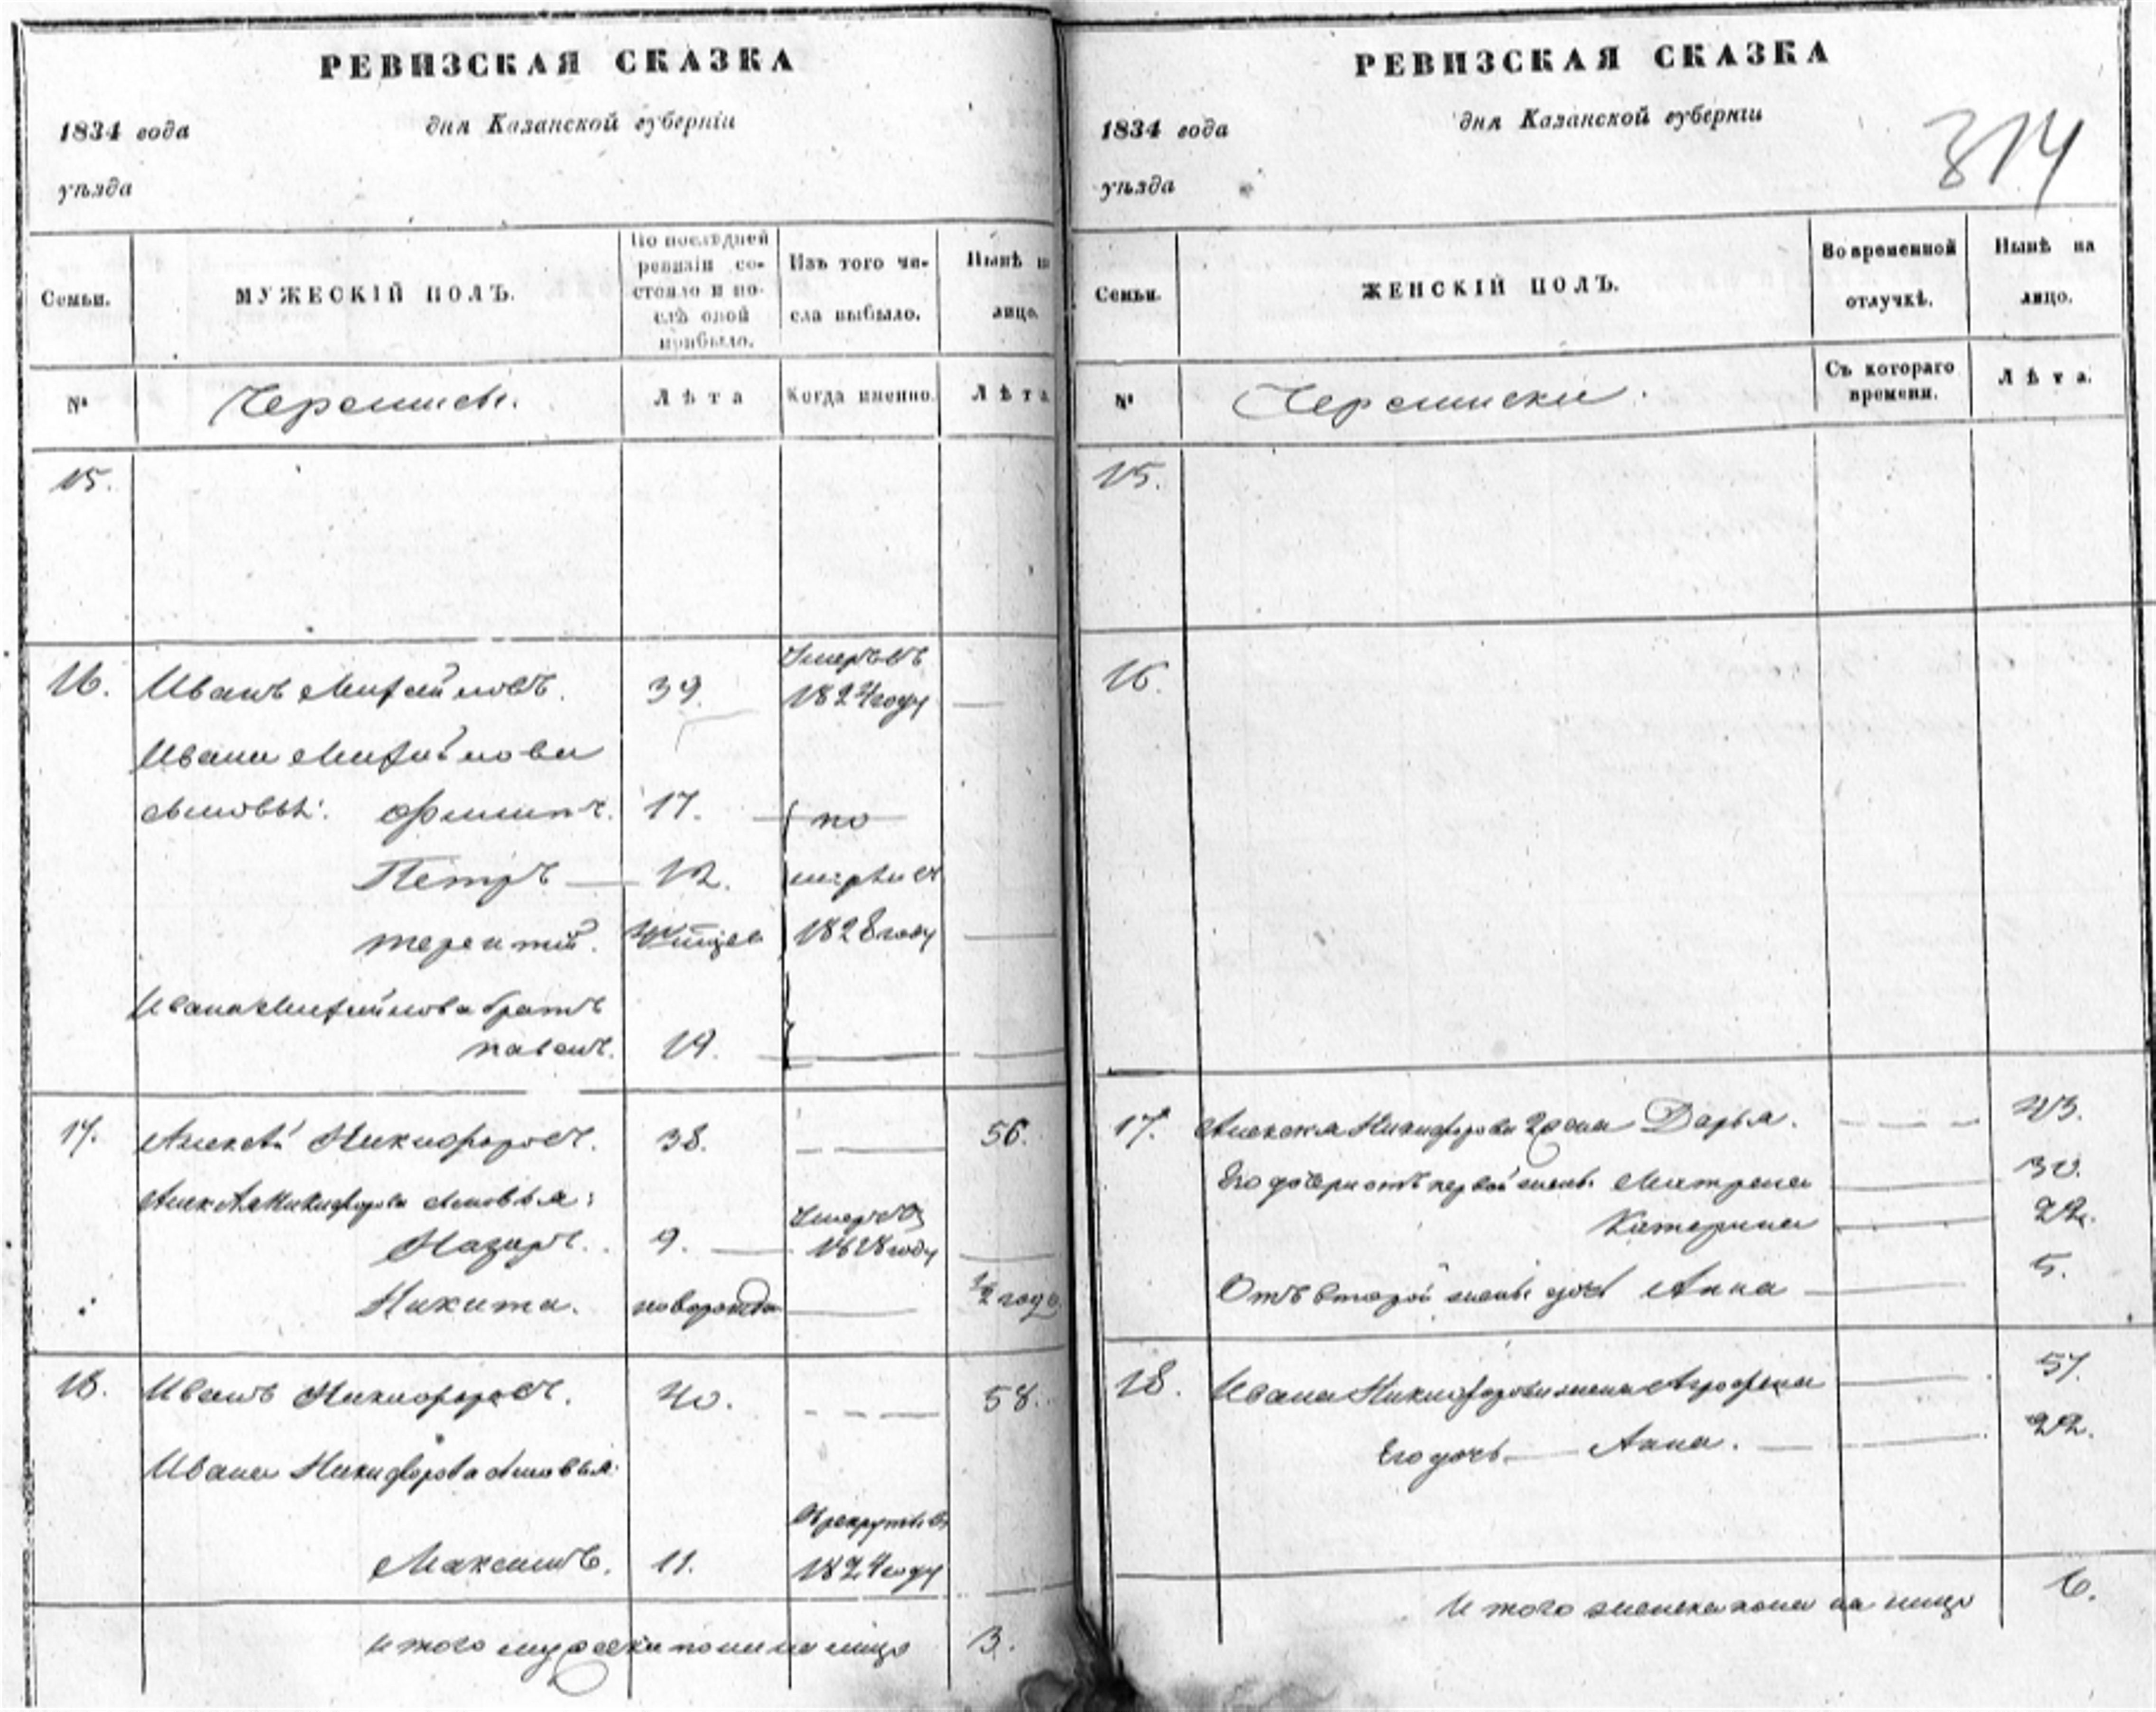 РЕВИЗСКАЯ СКАЗКА
1834 года дня Казанской губерніи
уѣзда
Семьи.
МУЖЕСКІЙ ПОЛЪ.
По послѣдней
ревизіи со-
стояло и по-
слѣ оной
прибыло.
Изъ того чи-
сла выбыло.
Нынѣ на
лицо.
№
Черемисы.
Лѣта
Когда именно.
Лѣта
15.
16. Иванъ 39. Умеръ въ
1824 году
Ивана
сыновья: Филиппъ. 17. по
Петръ 12. мерли въ
терентій. 1828 году
Ивана братъ
павелъ. 19.
17. Алексѣй Никифоровъ. 38. 56.
Алексѣя Никифорова сыновья:
Назаръ. 9. Умеръ въ
1828 году
Никита. новорожден 1/2 года
18. Иванъ Никифоровъ. 40. 58.
Ивана Никифорова сыновья:
Максимъ. 11. Въ рекруты въ
1824 году
Итого мужеска пола на лицо 3.
РЕВИЗСКАЯ СКАЗКА
1834 года дня Казанской губерніи
уѣзда
314
Семьи.
ЖЕНСКІЙ ПОЛЪ.
Во временной
отлучкѣ.
Нынѣ на
лицо.
№
Черемиски.
Съ котораго
времени.
Лѣта.
15.
16.
17. Алексѣя Никифорова жена Дарья. 43.
Его дочери отъ первой жены Матрена 30.
Катерина 22.
Отъ второй жены дочь Анна 5.
18. Ивана Никифорова жена Агрофена 57.
Его дочь Анна. 22.
Итого женска пола на лицо 6.